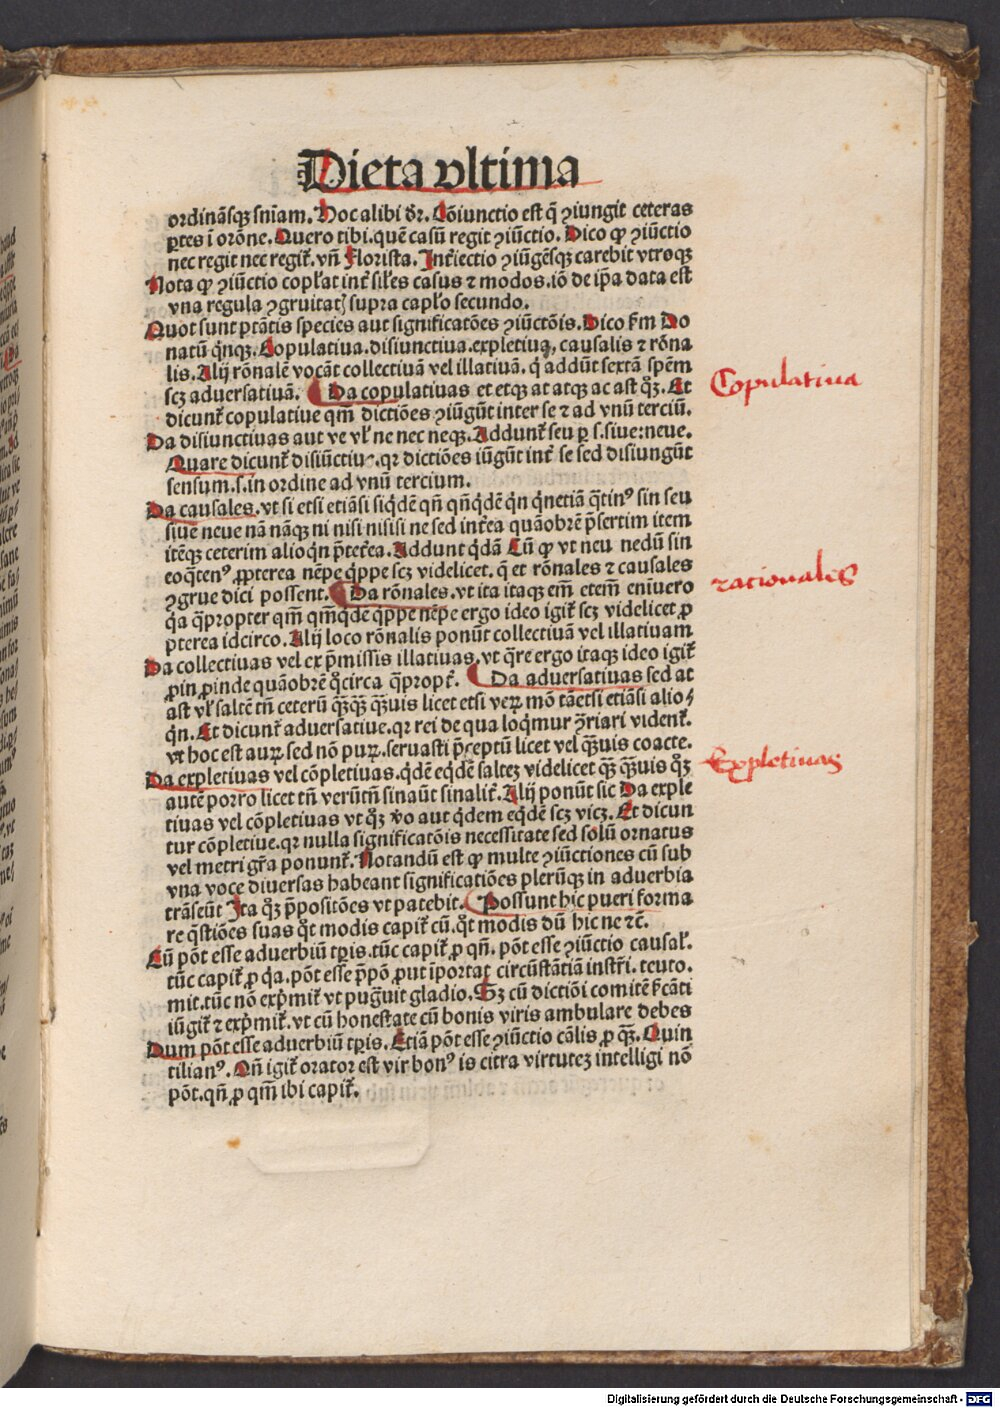 Dieta vltima
ordinãsqꝫ sniam. Hoc alibi dr̃. Cõiunctio est q̃ ꝯiungit ceteras
ꝑtes i orõne. Quero tibi. quẽ casũ regit ꝯiũctio. Dico ꝙ ꝯiũctio
nec regit nec regit̃. vñ Florista. Int̃iectio ꝯiũgẽsqꝫ carebit vtroqꝫ
Nota ꝙ ꝯiũctio copl̃at int̃ sil̃es casus ⁊ modos. iõ de ip̃a data est
vna regula ꝯgruitat supra capl̃o secundo.
Quot sunt ptãtis species aut significatões ꝯiũctõis. Dico s̃m Do
natũ q̇nqꝫ. Copulatiua. disiunctiua. expletiua, causalis ⁊ rõna
lis. Alij rõnalẽ vocãt collectiuã vel illatiuã. q̇ addũt sextã spẽm
scꝫ aduersatiuã. Da copulatiuas et etqꝫ at atqꝫ ac ast qꝫ. Et
dicunt̃ copulatiue qm̃ dictiões ꝯiũgũt inter se ⁊ ad vnũ terciũ.
Da disiunctiuas aut ve vl̃ ne nec neqꝫ. Addunt̃ seu ꝑ s. siue: neue.
Quare dicunt̃ disiũctiue. qꝛ dictiões iũgũt int̃ se sed disiungũt
sensum. s. in ordine ad vnũ tercium.
Da causales. vt si etsi etiãsi siq̇dẽ qñ qñq̇dẽ q̇n q̇netiã q̃tinꝰ sin seu
siue neue nã nãqꝫ ni nisi nisisi ne sed int̃ea quãobrẽ p̃sertim item
itẽqꝫ ceterim alioq̇n p̃ter̃ea. Addunt q̇dã Cũ ꝙ vt neu nedũ sin
eoq̃tenꝰ ꝓpterea nẽpe q̇ppe scꝫ videlicet. q̃ et rõnales ⁊ causales
ꝯgrue dici possent. Da rõnales. vt ita itaqꝫ em̃ etem̃ enĩuero
q̇a q̃propter qm̃ qm̃q̇dẽ q̇ppe nẽpe ergo ideo igit̃ scꝫ videlicet ꝓ
pterea idcirco. Alij loco rõnalis ponũt collectiuã vel illatiuam
Da collectiuas vel ex p̃missis illatiuas. vt q̃re ergo itaqꝫ ideo igit̃
ꝓin ꝓinde quãobrẽ q̊circa q̃propt̃. Da aduersatiuas sed at
ast vl̃ saltẽ tñ ceterũ q̃ꝫq̃ꝫ q̃ꝫuis licet etsi veꝝ mõ tãetsi etiãsi alio
q̇n. Et dicunt̃ aduersatiue. qꝛ rei de qua loq̇mur ꝯ̃riari vident̃.
vt hoc est auꝝ. sed nõ puꝝ. seruasti p̃ceptũ licet vel q̃ꝫuis coacte.
Da expletiuas vel cõpletiuas. q̇dẽ eq̇dẽ saltez videlicet q̃ꝫ q̃ꝫuis qꝫ
autẽ porro licet tñ verũtñ sinaũt sinalit̃. Alij ponũt sic Da exple
tiuas vel cõpletiuas vt qꝫ vo aut q̇dem eq̇dẽ scꝫ vicꝫ. Et dicun
tur cõpletiue. qꝛ nulla significatõis necessitate sed solũ ornatus
vel metri gr̃a ponunt̃. Notandũ est ꝙ multe ꝯiũctiones cũ sub
vna voce diuersas habeant significatiões plerũqꝫ in aduerbia
trãseũt Ita qꝫ p̃positões vt patebit. Possunt hic pueri forma
re q̃stiões suas q̊t modis capit̃ cũ. q̊t modis dũ hic ne ⁊c̃.
Cũ põt esse aduerbiũ tꝑis. tũc capit̃ ꝓ qñ. põt esse ꝯiũctio causal̃.
tũc capit̃ ꝓ q̇a. põt esse p̃põ ꝓut ĩportat circũstãtiã instr̃i. teuto.
mit. tũc nõ exp̃mit̃ vt pug̃uit gladio. Sꝫ cũ dictiõi comitẽ s̃cãti
iũgit̃ ⁊ exp̃mit̃. vt cũ honestate cũ bonis viris ambulare debes
Dum põt esse aduerbiũ tꝑis. Etiã põt esse ꝯiũctio cãlis ꝓ q̃ꝫ. Quin
tilianꝰ. Qñ igit̃ orator est vir bonꝰ is citra virtutez intelligi nõ
põt. qñ ꝓ qm̃ ibi capit̃.
Copulatiua
rationales
Expletiuas
Digitalisierung gefördert durch die Deutsche Forschungsgemeinschaft - DFG